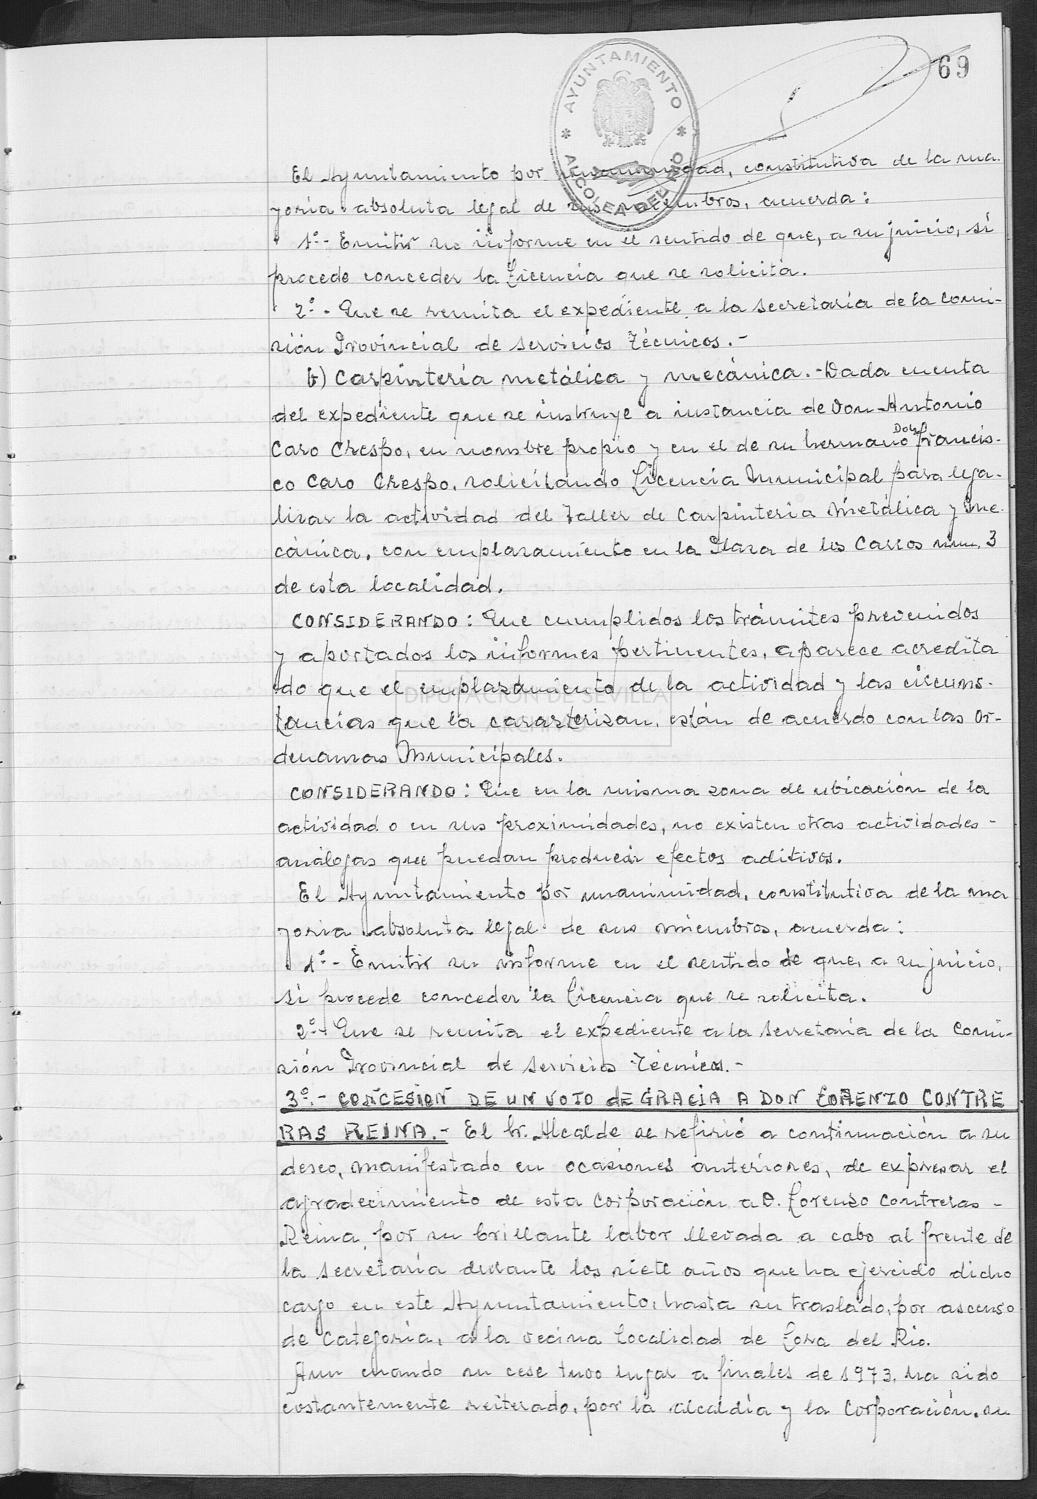 69
AYUNTAMIENTO
ALCOLEA DEL RIO
El Ayuntamiento por unanimidad, constitutiva de la ma-
yoria absoluta legal de sus miembros, acuerda:
1º.- Emitir su informe en el sentido de que, a su juicio, sí
procede conceder la Licencia que se solicita.
2º.- Que se remita el expediente a la Secretaría de la Comi-
sión Provincial de Servicios Técnicos.-
b) Carpintería metálica y mecánica.- Dada cuenta
del expediente que se instruye a instancia de Don Antonio
Caro Crespo, en nombre propio y en el de su hermano Don Francis-
co Caro Crespo, solicitando Licencia Municipal para lega-
lizar la actividad del Taller de Carpinteria Metálica y Me-
cánica, con emplazamiento en la Plaza de los Carros num. 3
de esta localidad.
CONSIDERANDO: Que cumplidos los trámites prevenidos
y aportados los informes pertinentes, aparece acredita
do que el emplazamiento de la actividad y las circuns-
tancias que la carasterizan, están de acuerdo con las Or-
denanzas Municipales.
DIPUTACIÓN DE SEVILLA
ARCHIVO
CONSIDERANDO: Que en la misma zona de ubicación de la
actividad o en sus proximidades, no existen otras actividades -
análogas que puedan producir efectos aditivos.
El Ayuntamiento por unanimidad, constitutiva de la ma
yoria absoluta legal de sus miembros, acuerda:
1º.- Emitir su informe en el sentido de que, a su juicio,
sí procede conceder la licencia que se solicita.
2º.- Que se remita el expediente a la Secretaría de la Comi-
sión Provincial de Servicios Técnicos.-
3º.- CONCESION DE UN VOTO de GRACIA A DON LORENZO CONTRE
RAS REINA.- El Sr. Alcalde se refirió a continuación a su
deseo, manifestado en ocasiones anteriores, de expresar el
agradecimiento de esta Corporación a D. Lorenzo Contreras -
Reina, por su brillante labor llevada a cabo al frente de
la Secretaría durante los siete años que ha ejercido dicho
cargo en este Ayuntamiento, hasta su traslado, por ascenso
de Categoría, a la vecina localidad de Lora del Rio.
Aun cuando su cese tuvo lugar a finales de 1973, ha sido
costantemente reiterado, por la Alcaldía y la Corporación, su